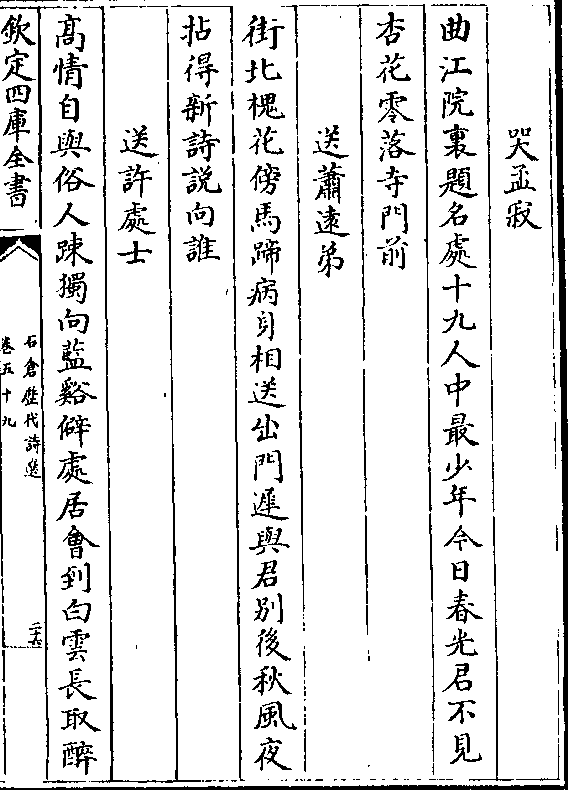 哭孟寂
曲江院裏題名處十九人中最少年今日春光君不見
杏花零落寺門前
送蕭逺弟
街北槐花傍馬蹄病身相送出門遲與君别後秋風夜
拈得新詩説向誰
送許處士
髙情自與俗人踈獨向藍谿僻處居㑹到白雲長取醉
欽定四庫全書
石倉歴代詩選
卷五十九
二十六